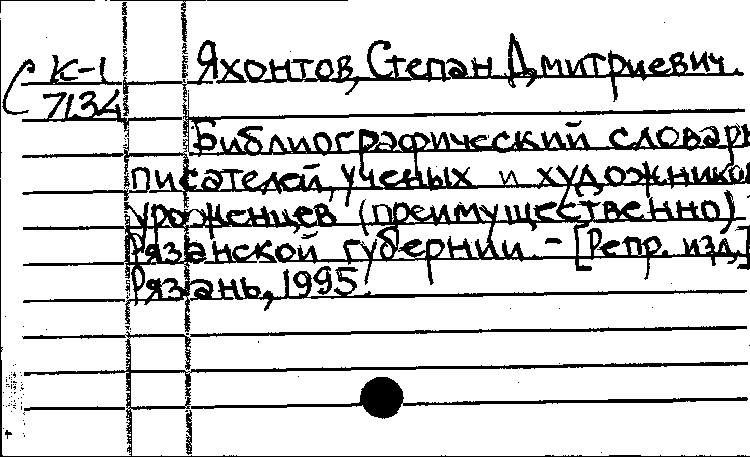 К-1 Яхонтов, Степан Дмитриевич.
7134
Библиографический словарь
писателей, ученых и художников
уроженцев (преимущественно)
Рязанской губернии. - [Репр. изд.]
Рязань, 1995.